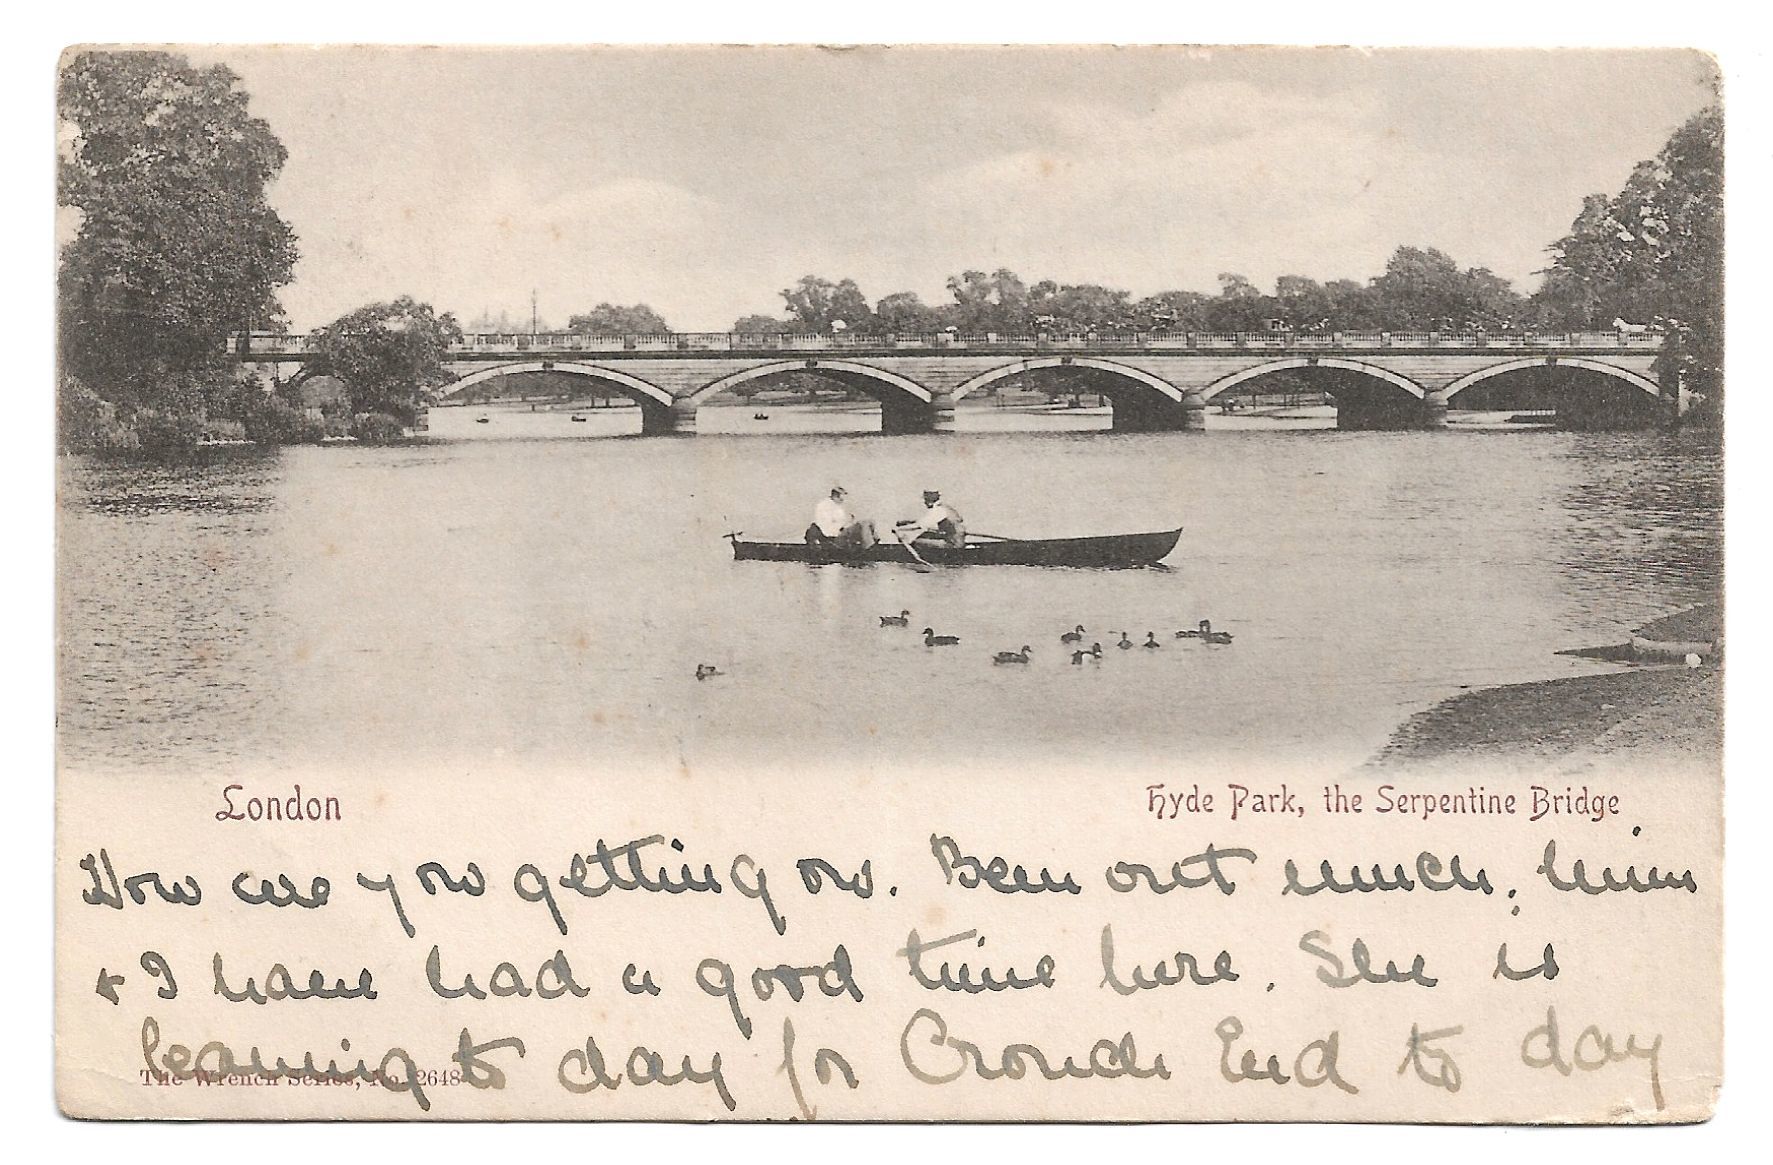 London
Hyde Park, the Serpentine Bridge
How are you getting on. Been out much.
& I have had a good time here. She is
leaving to day for Crouch End to day
The Wrench Series, No. 2648